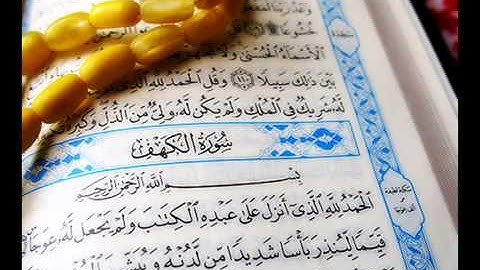 خُشُوعًا
الْأَسْمَاءُ الْحُسْنَىٰ وَلَا
بَيْنَ ذَٰلِكَ سَبِيلًا ۝١١٠ وَقُلِ الْحَمْدُ لِلَّهِ الَّذِي
لَّهُ شَرِيكٌ فِي الْمُلْكِ وَلَمْ يَكُن لَّهُ وَلِيٌّ مِّنَ الذُّلِّ وَكَبِّرْهُ
سُورَةُ الْكَهْفِ
بِسْمِ اللَّهِ الرَّحْمَٰنِ الرَّحِيمِ
الْحَمْدُ لِلَّهِ الَّذِي أَنزَلَ عَلَىٰ عَبْدِهِ الْكِتَٰبَ وَلَمْ يَجْعَل لَّهُ عِوَجًا
قَيِّمًا لِّيُنذِرَ بَأْسًا شَدِيدًا مِّن لَّدُنْهُ وَيُبَشِّرَ